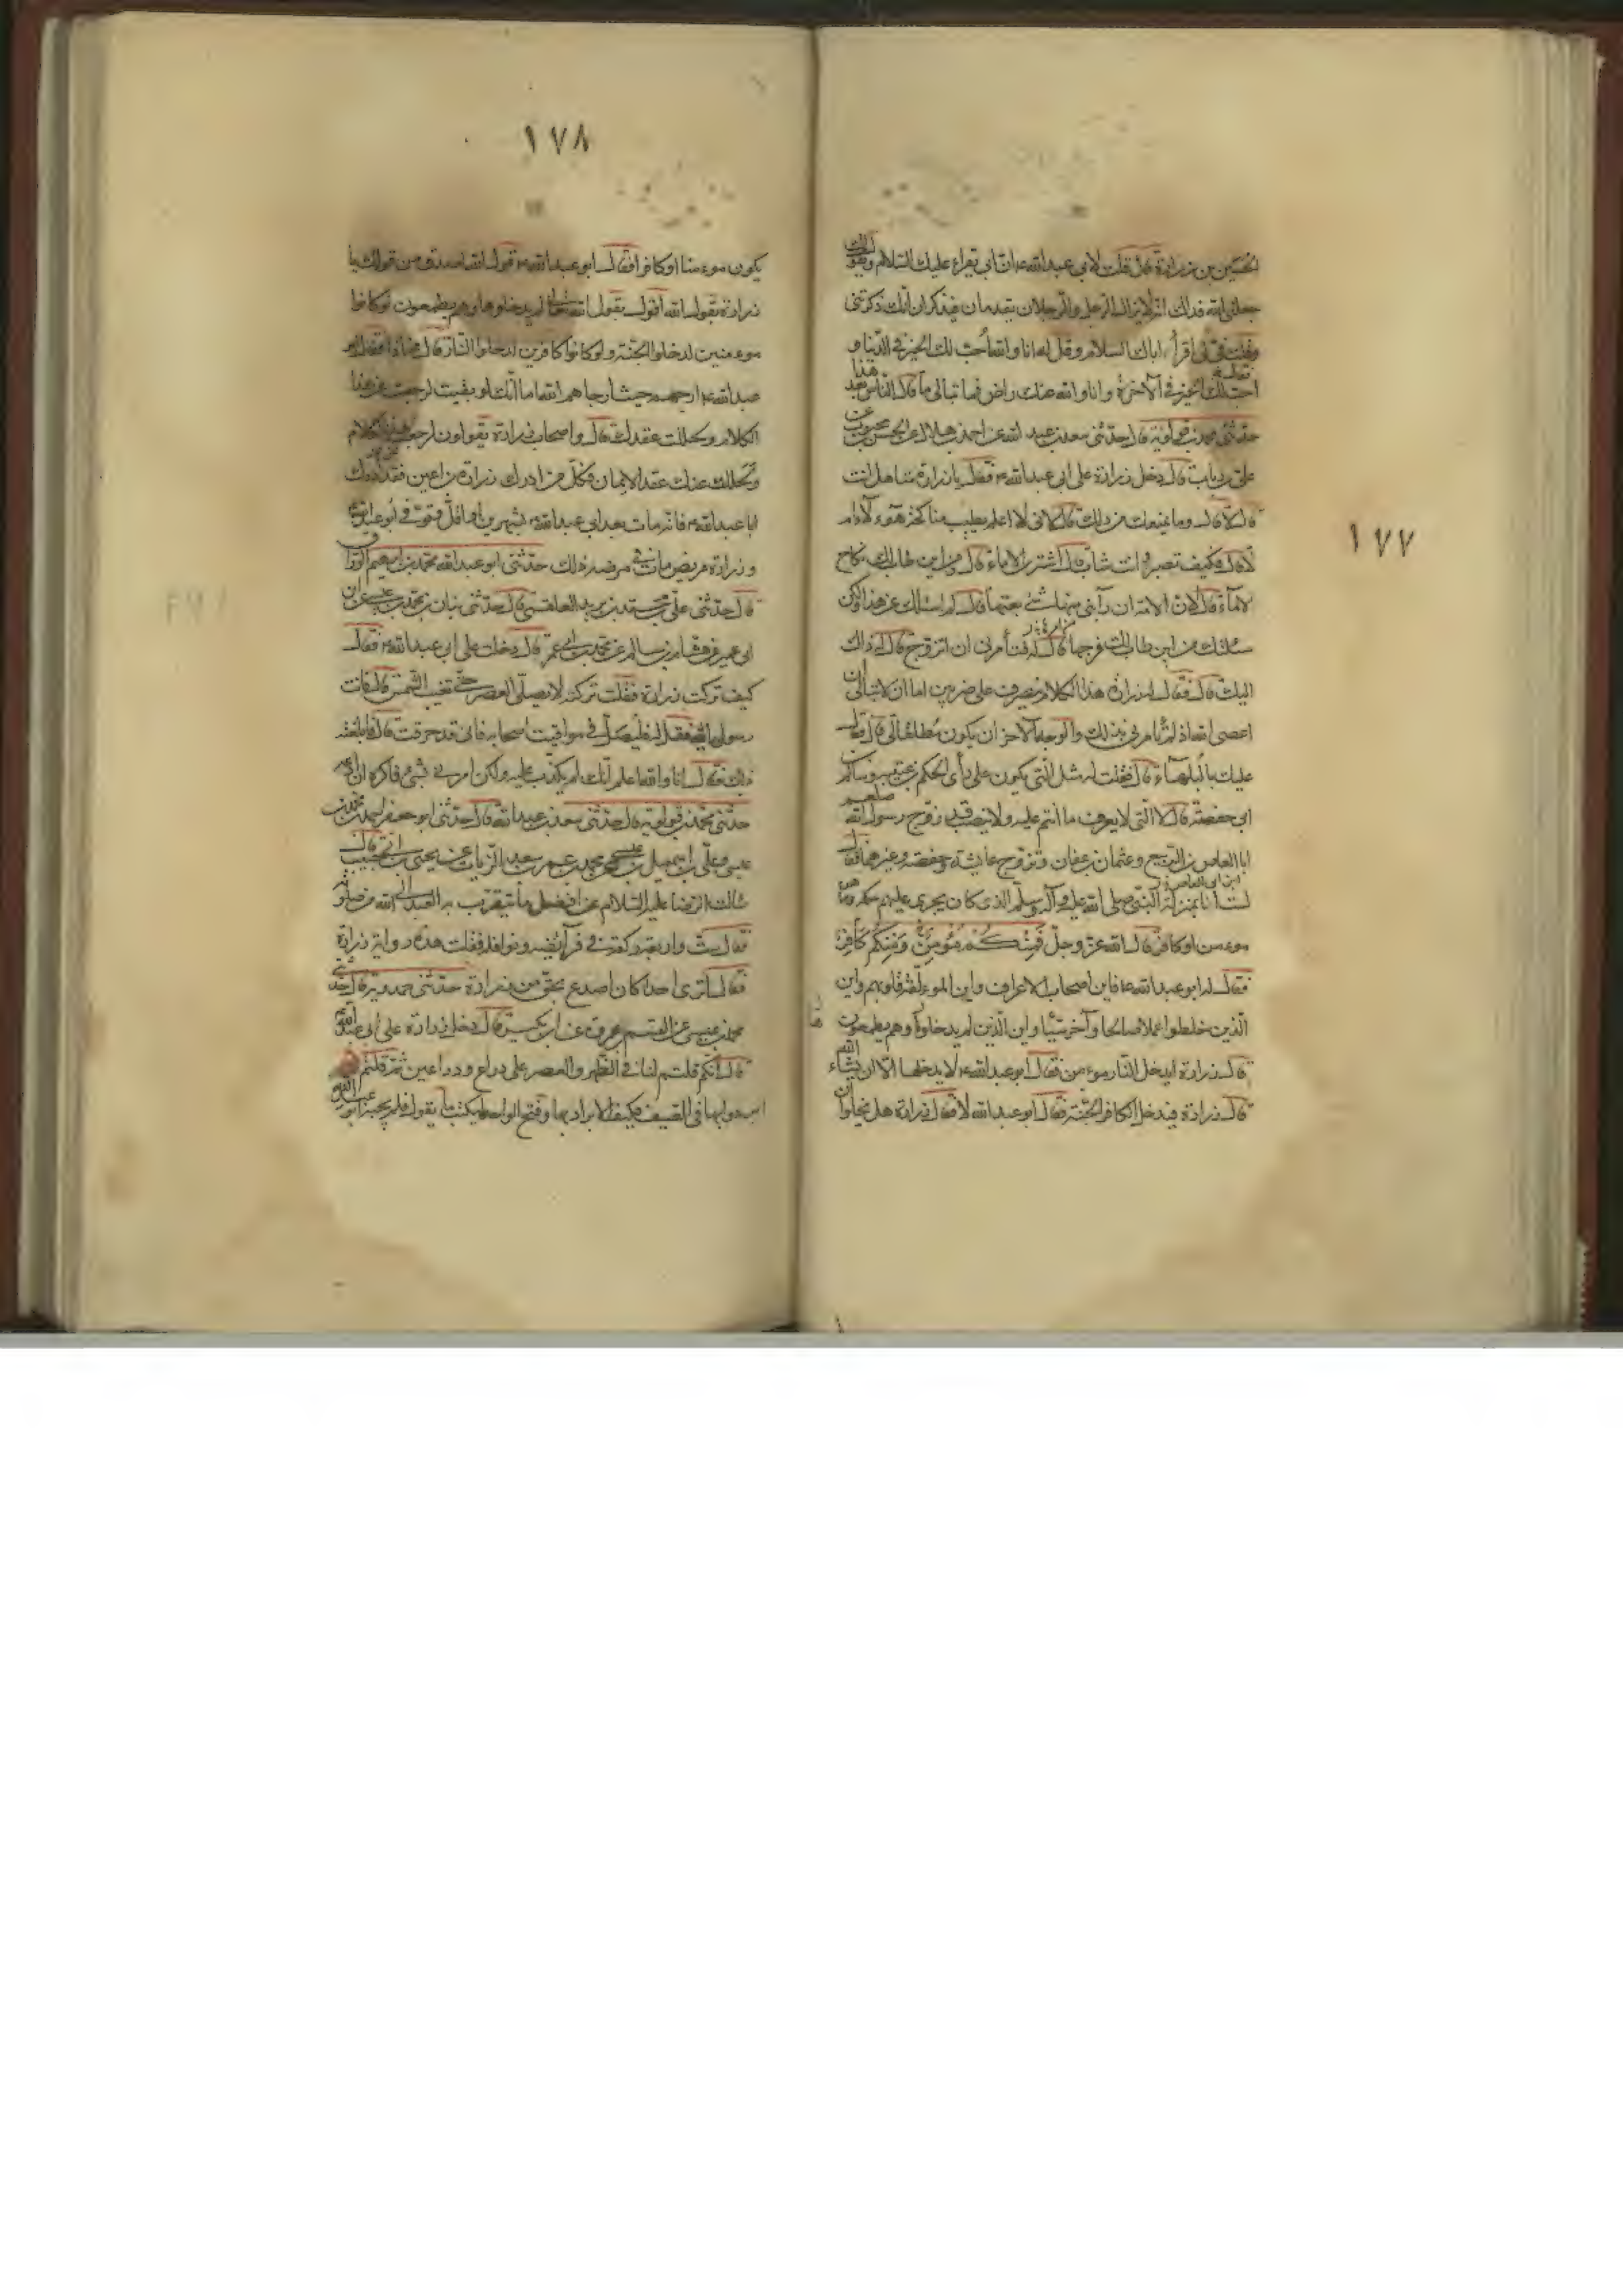 ١٧٧
الحسين بن زرارة قال قلت لابي عبدالله ع ان ابي يقراء عليك السلام ويقول لك
جعلني الله فداك انه لا يزال الرجل والرجلان يقدمان فيذكران انك ذكرتني
وقلت في اقرأ اباك السلام وقل له انا والله احب لك الخير في الدنيا و
احب لك الخير في الآخرة وانا والله عنك راض فما تبالي ما قال الناس بعد هذا
حدثني محمد بن قولويه قال حدثني سعد بن عبد الله عن احمد بن هلال عن الحسن بن محبوب عن
علي بن رياب قال دخل زرارة على ابي عبدالله ع فقال يا زرارة متاهل انت
قال لا قال وما يمنعك من ذلك قال لاني لا اعلم يطيب مناكحة هؤلاء ام
لا قال فكيف تصبر وانت شاب قال اشتري الاماء قال ومن اين طاب لك نكاح
الاماء قال لان الامة ان رابني منها شئ بعتها قال لم اسئلك عن هذا ولكن
سئلتك من اين طاب لك فرجها قال له فتأمرني ان اتزوج قال له ذاك
اليك قال فقال له زرارة هذا الكلام ينصرف على ضربين اما ان لا تبالي ان
اعصى الله اذ لم تأمرني بذلك والوجه الآخر ان يكون مطلقا لي قال فقال
عليك بالبلهاء قال فقلت له مثل التي يكون على رأى الحكم بن عتيبه وسالم بن
ابي حفصة قال لا التي لا يعرف ما انتم عليه ولا ينصب قد زوج رسول الله صلعم
ابا العاص بن الربيع وعثمان بن عفان وتزوج عايشة وحفصة وغيرهما فقال
لست انا بمنزلة النبي صلى الله عليه وآله وسلم الذي كان يجري عليهم حكمه وما هو
موءمن او كافر قال الله عز وجل فمنكم مؤمن ومنكم كافر
فقال له ابو عبد الله ع فاين اصحاب الاعراف واين الموءلفة قلوبهم واين
الذين خلطوا عملا صالحا وآخر سيئا واين الذين لم يدخلوها وهم يطمعون
قال زرارة ايدخل النار موءمن فقال ابو عبد الله ع لا يدخلها الا ان يشاء الله
قال زرارة فيدخل الكافر الجنة فقال ابو عبد الله لا فقال زرارة هل يخلوا ان
١٧٨
يكون موءمنا او كافرا فقال ابو عبد الله ع قول الله اصدق من قولك يا
زرارة بقول الله اقول يقول الله لم يدخلوها وهم يطمعون لو كانوا
موءمنين لدخلوا الجنة ولو كانوا كافرين لدخلوا النار قال فماذا فقال ابو
عبد الله ع ارجهم حيث ارجاهم الله اما انك لو بقيت لرجعت عن هذا
الكلام وتحللت عقدك قال واصحاب زرارة يقولون لرجعت عن هذا الكلام
وتحللت عنك عقد الايمان فكل من ادرك زرارة بن اعين فقد ادرك
ابا عبد الله ع فانه مات بعد ابي عبد الله ع بشهرين او اقل وتوفي ابو عبد الله ع
وزرارة مريض مات في مرضه ذلك حدثني ابو عبد الله محمد بن ابراهيم الوراق
قال حدثني علي بن محمد بن يزيد القمي قال حدثني بنان بن محمد بن عيسى عن ابن
ابي عمير عن هشام بن سالم عن محمد بن ابي عمير قال دخلت على ابي عبد الله ع فقال
كيف تركت زرارة فقلت تركته لا يصلي العصر حتى تغيب الشمس قال فانت
رسولي اليه فقل له فليصل في مواقيت اصحابه فاني قد حرقت قال فابلغته
ذلك فقال انا والله اعلم انك لم تكذب عليه ولكن امرني بشئ فاكره ان ادعه
حدثني محمد بن قولويه قال حدثني سعد بن عبد الله قال حدثني ابو جعفر احمد بن محمد بن
عيسى وعلي بن اسمعيل بن عيسى عن محمد بن عمر بن سعيد الزيات عن يحيى بن ابي حبيب قال
سالت الرضا عليه السلام عن افضل ما يتقرب به العبد الى الله من صلوته
فقال ست واربعون ركعة في فرآيضه ونوافله فقلت هذه رواية زرارة
فقال اترى احدا كان اصدع بحق من زرارة حدثني حمدويه قال حدثني
محمد بن عيسى عن القسم بن عروة عن ابن بكير قال دخل زرارة على ابي عبد الله ع
قال انكم قلتم لنا في الظهر والعصر على ذراع وذراعين ثم قلتم
ابردوا بها في الصيف فكيف الابراد بها وفتح الواحه ليكتب ما يقول فلم يجبه ابو عبد الله